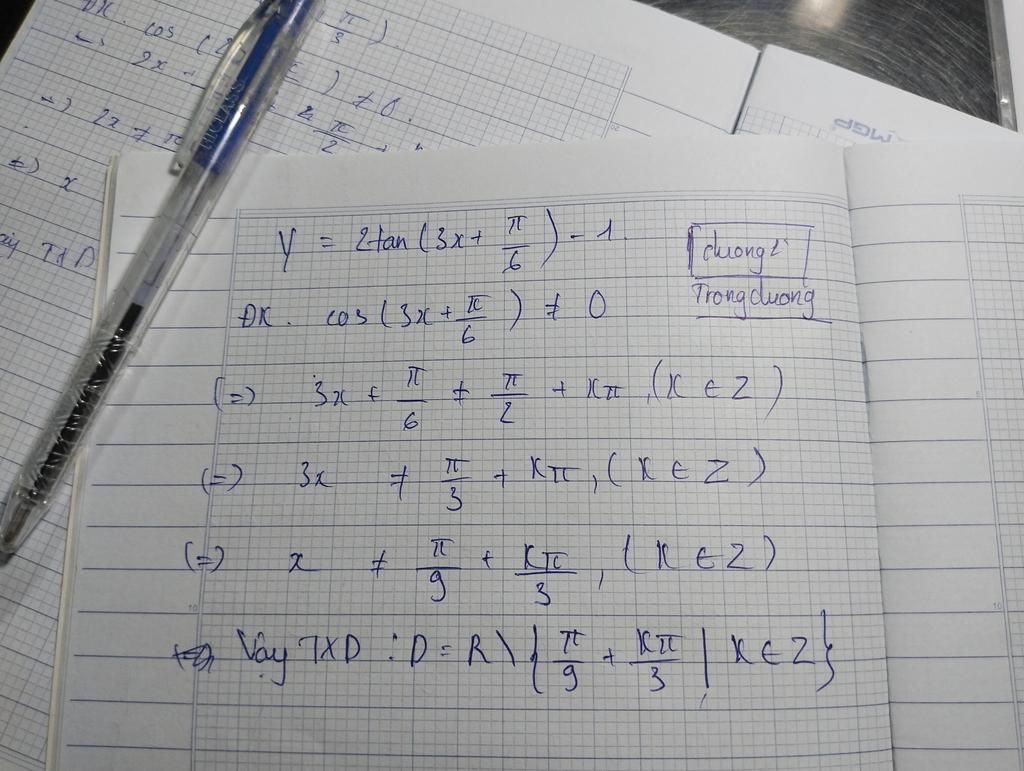 ĐK. cos (2
π/3).
<=> 2x +
) ≠ 0.
=) 2x ≠
π/2 +
<=> x
TXD
MGP
Y = 2tan(3x + π/6) - 1.
duong2
Trongduong
ĐK. cos(3x + π/6) ≠ 0
(=) 3x + π/6 ≠ π/2 + Kπ, (K ∈ Z)
(=) 3x ≠ π/3 + Kπ, (K ∈ Z)
(=) x ≠ π/9 + Kπ/3, (K ∈ Z)
Vậy TXD : D = R \ {π/9 + Kπ/3 | K ∈ Z}